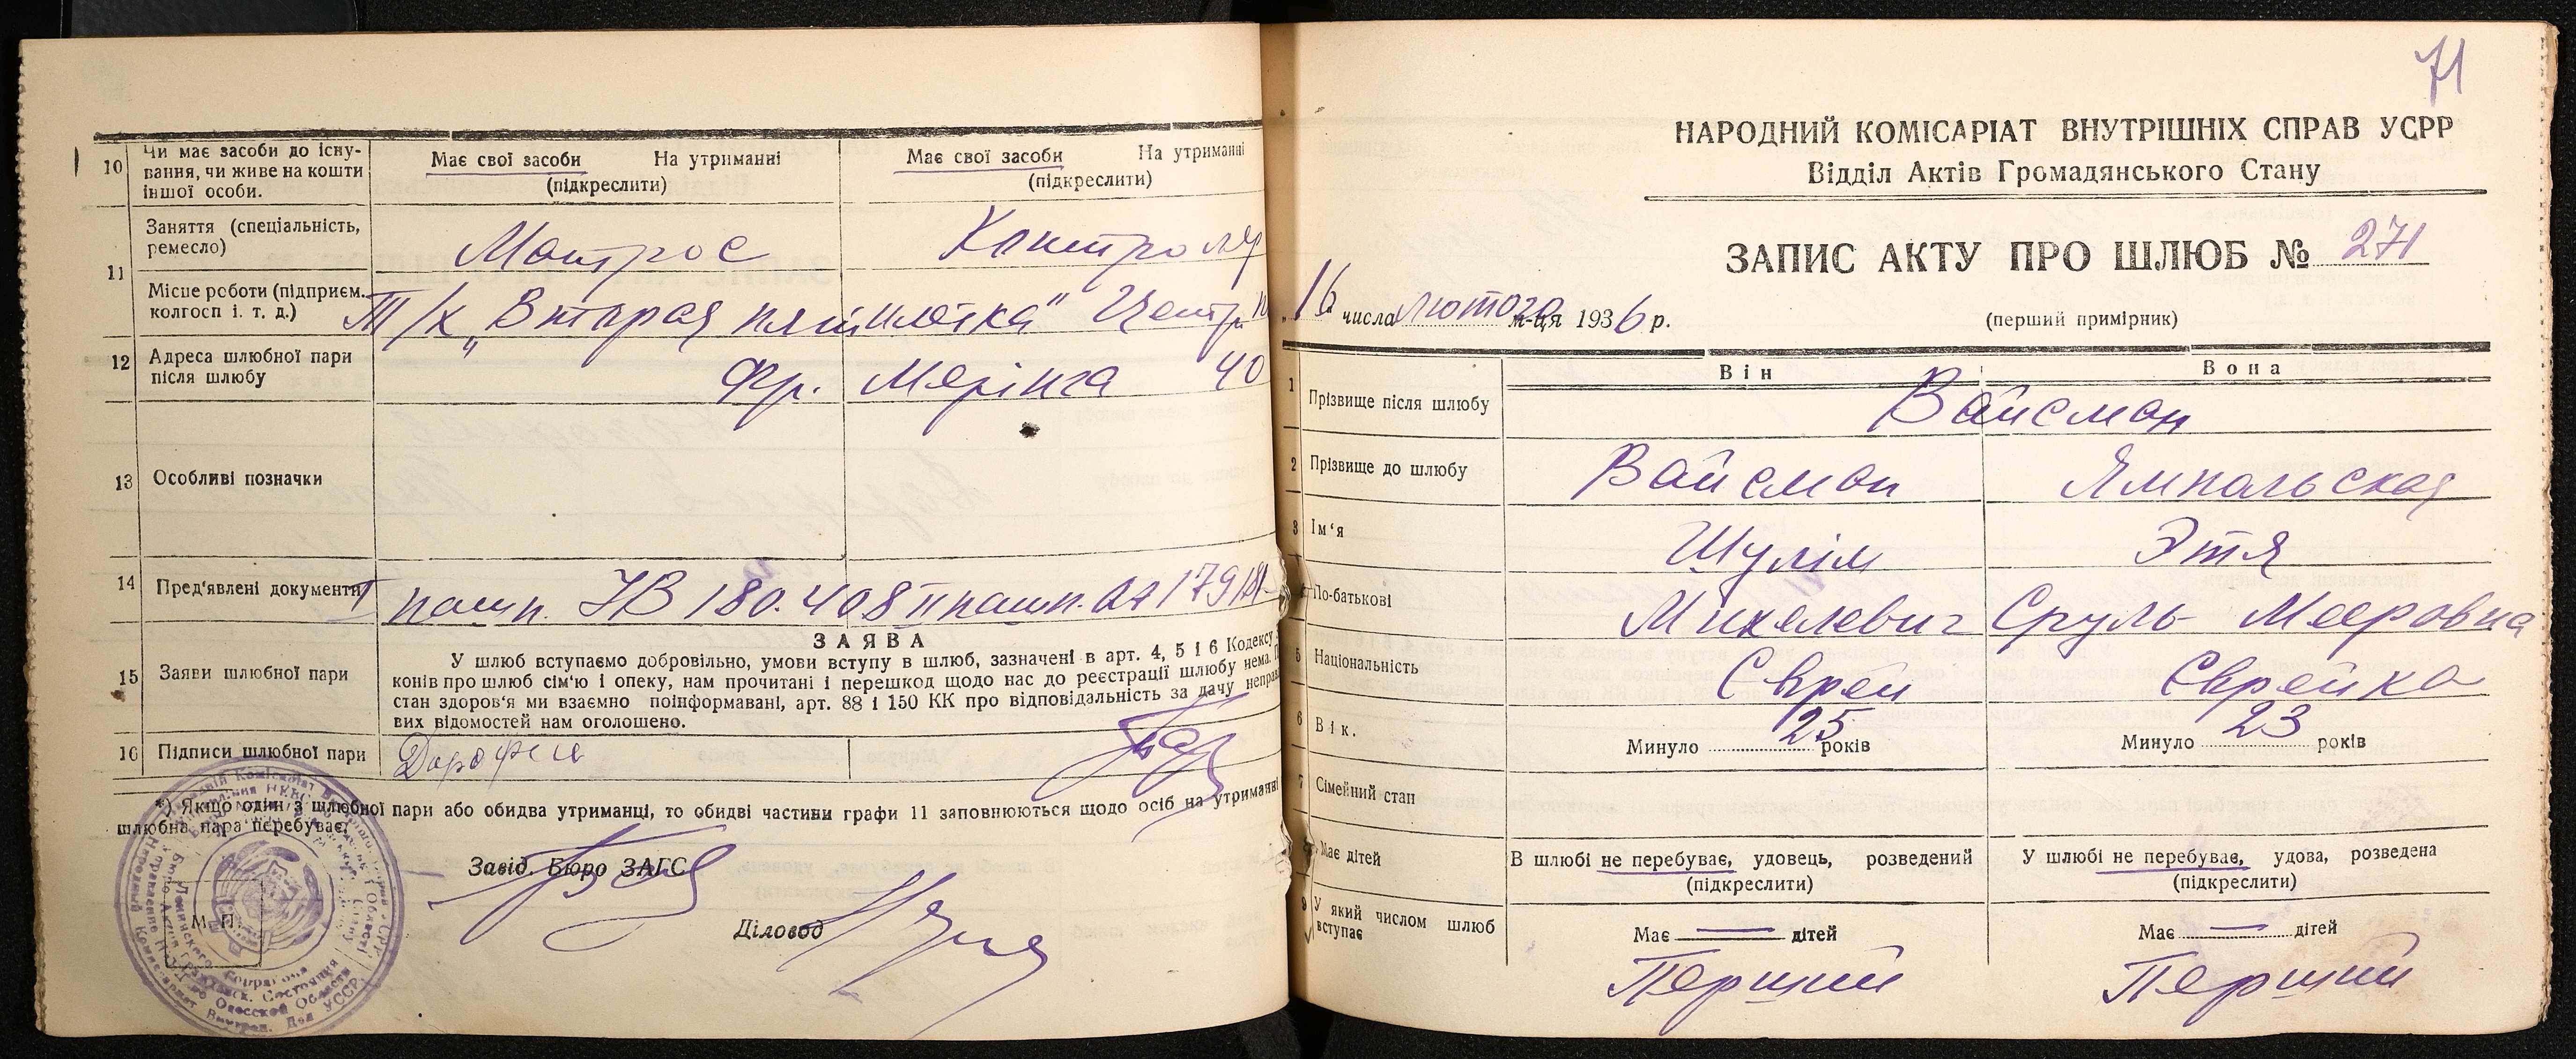 10 Чи має засоби до існу-
вання, чи живе на кошти
іншої особи.
Має свої засоби На утриманні
(підкреслити)
Має свої засоби На утриманні
(підкреслити)
11 Заняття (спеціальність,
ремесло)
Матрос
Контроляр
Місце роботи (підприєм.,
колгосп і. т. д.)
Т/х „Вторая пятилетка"
12 Адреса шлюбної пари
після шлюбу
Фр. Мерінга 40
13 Особливі позначки
14 Пред'явлені документи
I пашп. ЈВ 180.408 II пашп.
15 Заяви шлюбної пари
ЗАЯВА
У шлюб вступаємо добровільно, умови вступу в шлюб, зазначені в арт. 4, 5 і 6 Кодексу
конів про шлюб сім'ю і опеку, нам прочитані і перешкод щодо нас до реєстрації шлюбу нема.
стан здоров'я ми взаємно поінформавані, арт. 88 і 150 КК про відповідальність за дачу неправ
вих відомостей нам оголошено.
16 Підписи шлюбної пари
*) Якщо один з шлюбної пари або обидва утриманці, то обидві частини графи 11 заповнюються щодо осіб на утриманні
шлюбна пара перебуває.
Завід. Бюро ЗАГС
Діловод
М. П.
71
НАРОДНИЙ КОМІСАРІАТ ВНУТРІШНІХ СПРАВ УСРР
Відділ Актів Громадянського Стану
ЗАПИС АКТУ ПРО ШЛЮБ № 271
„16" числа лютого м-ця 1936 р.
(перший примірник)
Він Вона
1 Прізвище після шлюбу
Вайсман
2 Прізвище до шлюбу
Вайсман
Ямпольская
3 Ім'я
Шулім
Этя
4 По-батькові
Михелевич
Сруль-Мееровна
5 Національність
Єврей
Єврейка
6 Вік.
Минуло 25 років
Минуло 23 років
7 Сімейний стан
8 Має дітей
В шлюбі не перебуває, удовець, розведений
(підкреслити)
У шлюбі не перебував, удова, розведена
(підкреслити)
9 У який числом шлюб
вступає
Має — дітей
Має — дітей
Перший
Перший